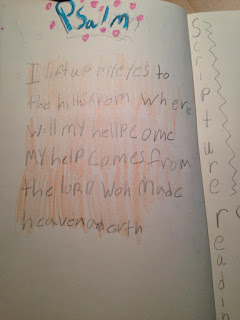 Psalm
I lift up my eyes to
the hills from where
will my hellp come
my help comes from
the LORD woh made
heaven and earth
Scripture readin